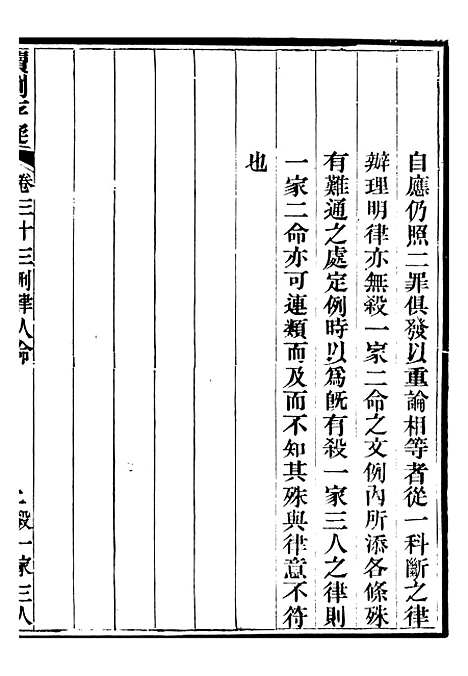 自應仍照二罪俱發以重論相等者從一科斷之律
辦理明律亦無殺一家二命之文例內所添各條殊
有難通之處定例時以爲旣有殺一家三人之律則
一家二命亦可連類而及而不知其殊與律意不符
也
讀例存疑
卷三十三刑律人命
殺一家三人